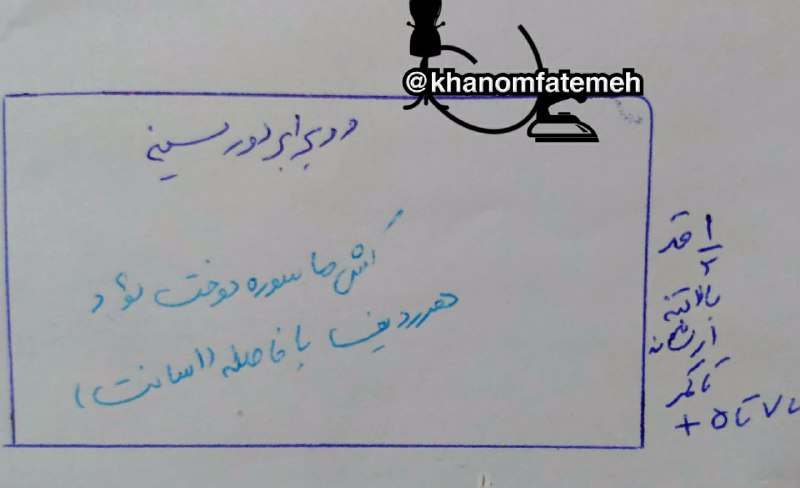 @khanomfatemeh
دو برابر دور سینه
کش ماسوره دوخت شود
هر ردیف با فاصله (۱سانت)
۱/۲ قد
بالاتنه
از شانه
تا کمر
+ ۵ تا ۷